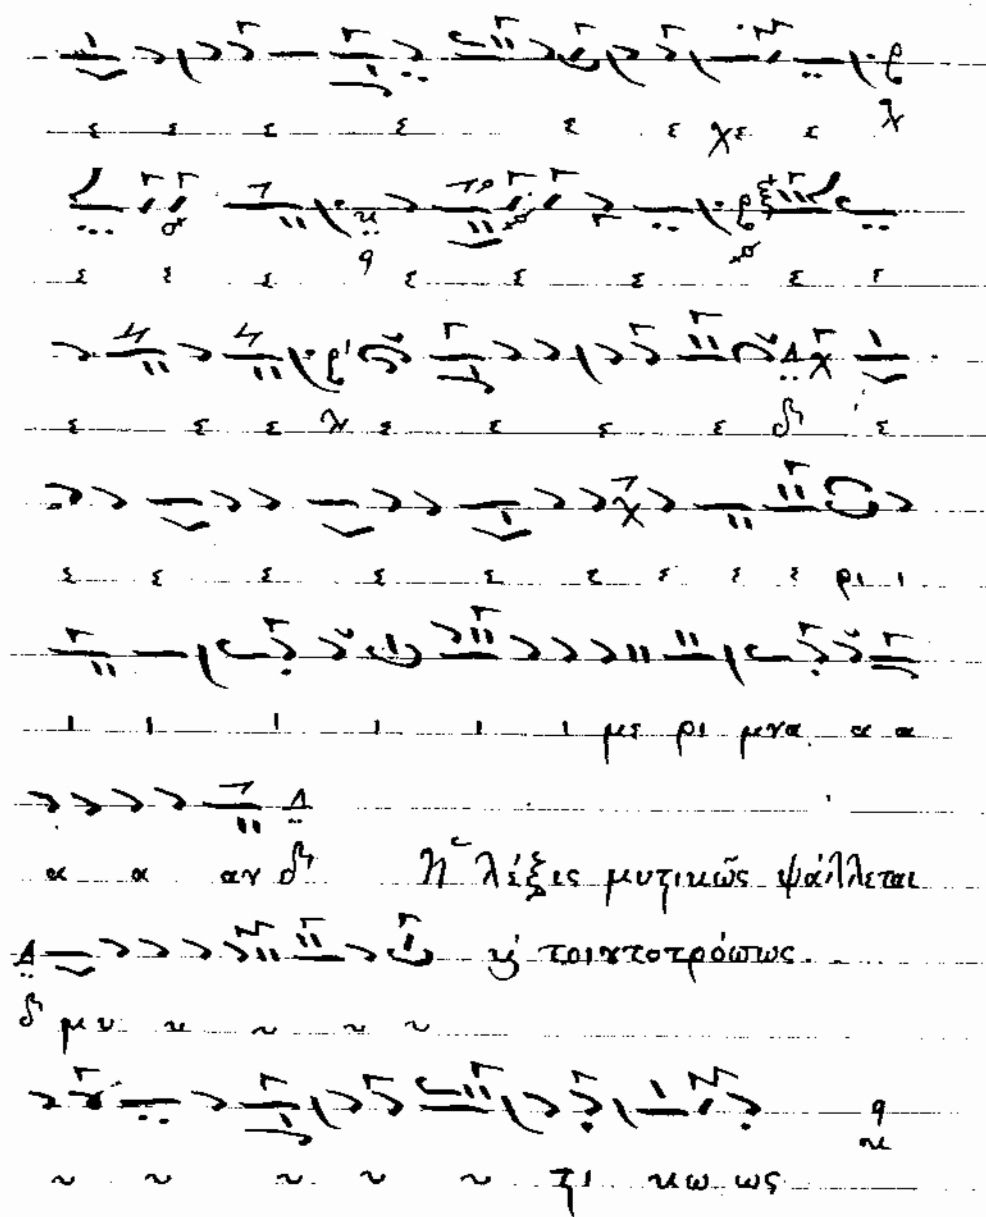 ε ε ε ε ε ε χε ε
ε ε ε ε ε ε ε ε
ε ε ε ε ε ε ε ε
ε ε ε ε ε ε ε ε ε ρι ι
ι ι ι ι ι ι με ρι μνα α α
α α αν Ἡ λέξις μυϛικῶς ψάλλεται
ϗ τοιȣτοτρόπως.
μυ υ υ υ υ
υ υ υ υ υ ϛι κω ως